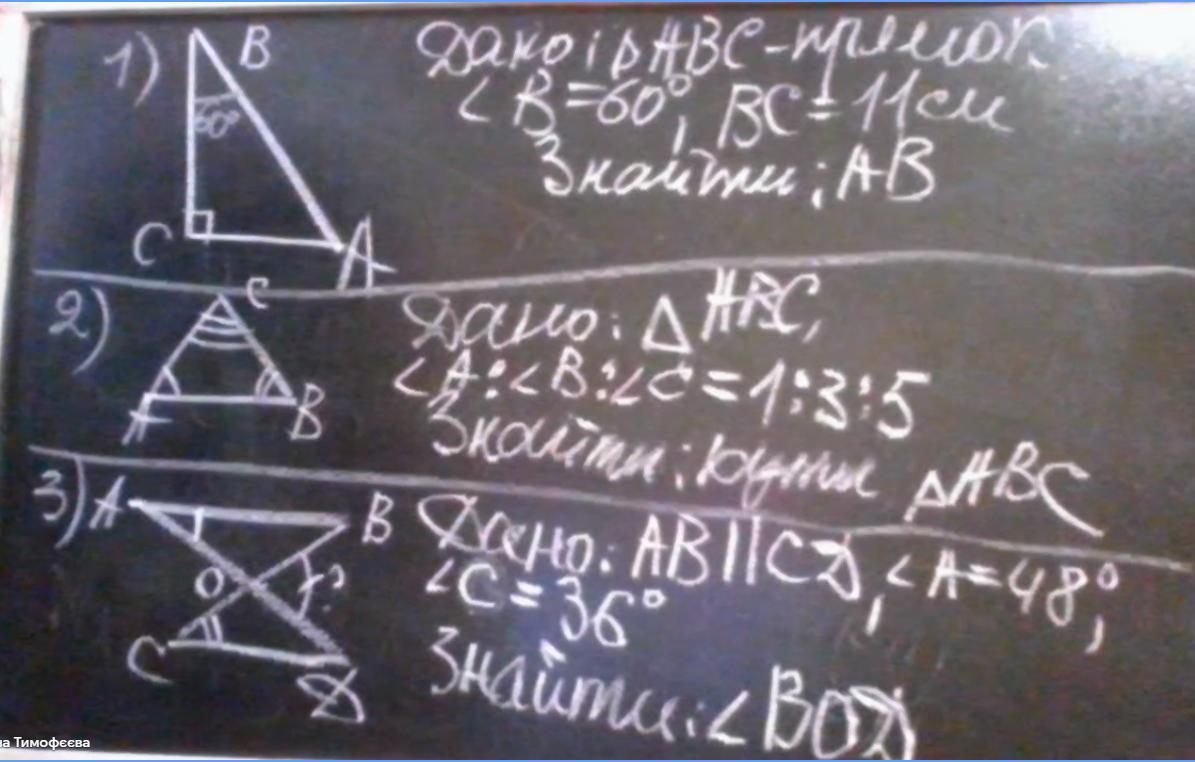 1)
B
60°
C
A
Дано: △ABC-прямок
∠B=60°, BC=11см
Знайти: AB
2)
C
A
B
Дано: △ABC,
∠A:∠B:∠C=1:3:5
Знайти: кути △ABC
3)
A
B
O
?
C
Д
Дано: AB||CД, ∠A=48°,
∠C=36°
Знайти: ∠BOД
на Тимофєєва